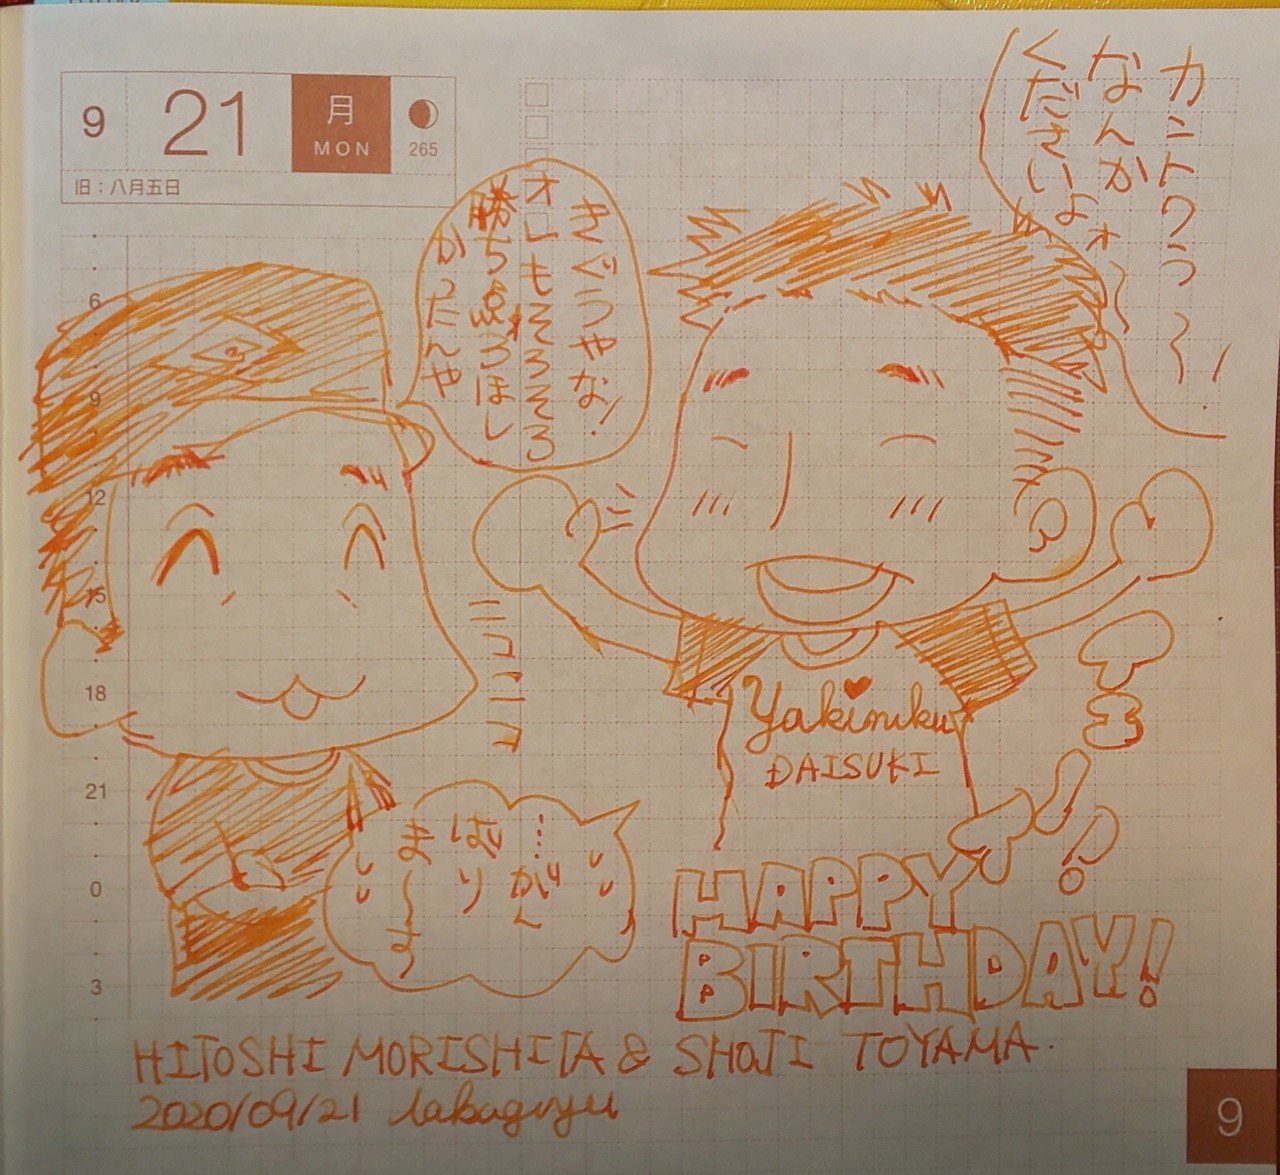 9
21
月
MON
265
旧：八月五日
カントクゥ〜!
なんか
くださいよォ〜
きぐうやな!
オレもそろそろ
勝ち星がほし
かったんや
6
9
12
15
18
21
0
3
ニコ
ニコ
…がん
ばり
ま〜す
Yakiniku
DAISUKI
HAPPY
BIRTHDAY!
HITOSHI MORISHITA & SHOJI TOYAMA.
2020/09/21
9